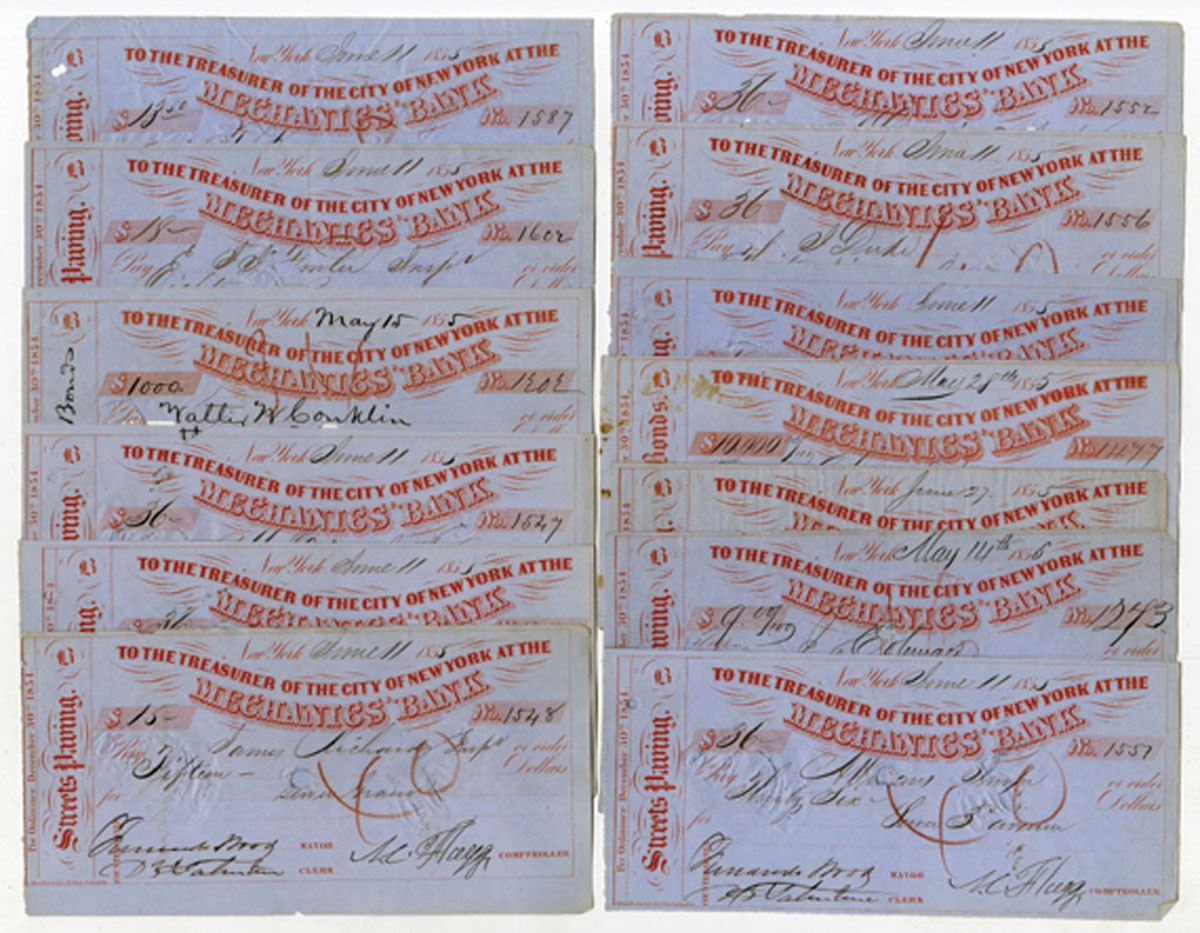 New York June 11 1855
TO THE TREASURER OF THE CITY OF NEW YORK AT THE
MECHANICS' BANK
$ 13.50 No. 1587
30th 1854
B
New York June 11 1855
TO THE TREASURER OF THE CITY OF NEW YORK AT THE
MECHANICS' BANK
$ 18- No. 1602
Pay Insp or order
Dollars
Paving.
cember 30th 1854
B
New York May 15 1855
TO THE TREASURER OF THE CITY OF NEW YORK AT THE
MECHANICS' BANK
$ 1000 No. 1202
Walter W Conklin or order
Bonds
mber 30th 1854
B
New York June 11 1855
TO THE TREASURER OF THE CITY OF NEW YORK AT THE
MECHANICS' BANK
$ 36- No. 1547
B
New York June 11 1855
TO THE TREASURER OF THE CITY OF NEW YORK AT THE
MECHANICS' BANK
B
New York June 11 1855
TO THE TREASURER OF THE CITY OF NEW YORK AT THE
MECHANICS' BANK
$ 15- No. 1548
Pay James Richards Insp or order
Fifteen - Dollars
for
Fernando Wood MAYOR
D T Valentine CLERK
A C Flagg COMPTROLLER
Streets Paving.
Per Ordinance December 30th 1854
B
New York June 11 1855
TO THE TREASURER OF THE CITY OF NEW YORK AT THE
MECHANICS' BANK
$ 36- No. 1552
30th 1854
B
New York June 11 1855
TO THE TREASURER OF THE CITY OF NEW YORK AT THE
MECHANICS' BANK
$ 36 No. 1556
Pay or order
Dollars
Paving.
B
New York June 11 1855
TO THE TREASURER OF THE CITY OF NEW YORK AT THE
MECHANICS' BANK
B
New York May 28th 1855
TO THE TREASURER OF THE CITY OF NEW YORK AT THE
MECHANICS' BANK
$ 10,000 No. 1277
Bonds.
B
New York June 27 1855
TO THE TREASURER OF THE CITY OF NEW YORK AT THE
MECHANICS' BANK
B
New York May 14th 1855
TO THE TREASURER OF THE CITY OF NEW YORK AT THE
MECHANICS' BANK
$ 9.00/100 No. 1243
or order
B
New York June 11 1855
TO THE TREASURER OF THE CITY OF NEW YORK AT THE
MECHANICS' BANK
$ 36- No. 1551
Pay or order
Thirty Six - Dollars
for
Fernando Wood MAYOR
D T Valentine CLERK
A C Flagg COMPTROLLER
Streets Paving.
Per Ordinance December 30th 1854
B